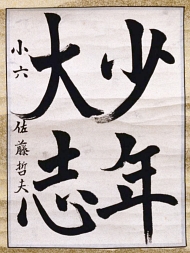 少年
大志
小六 佐藤哲夫